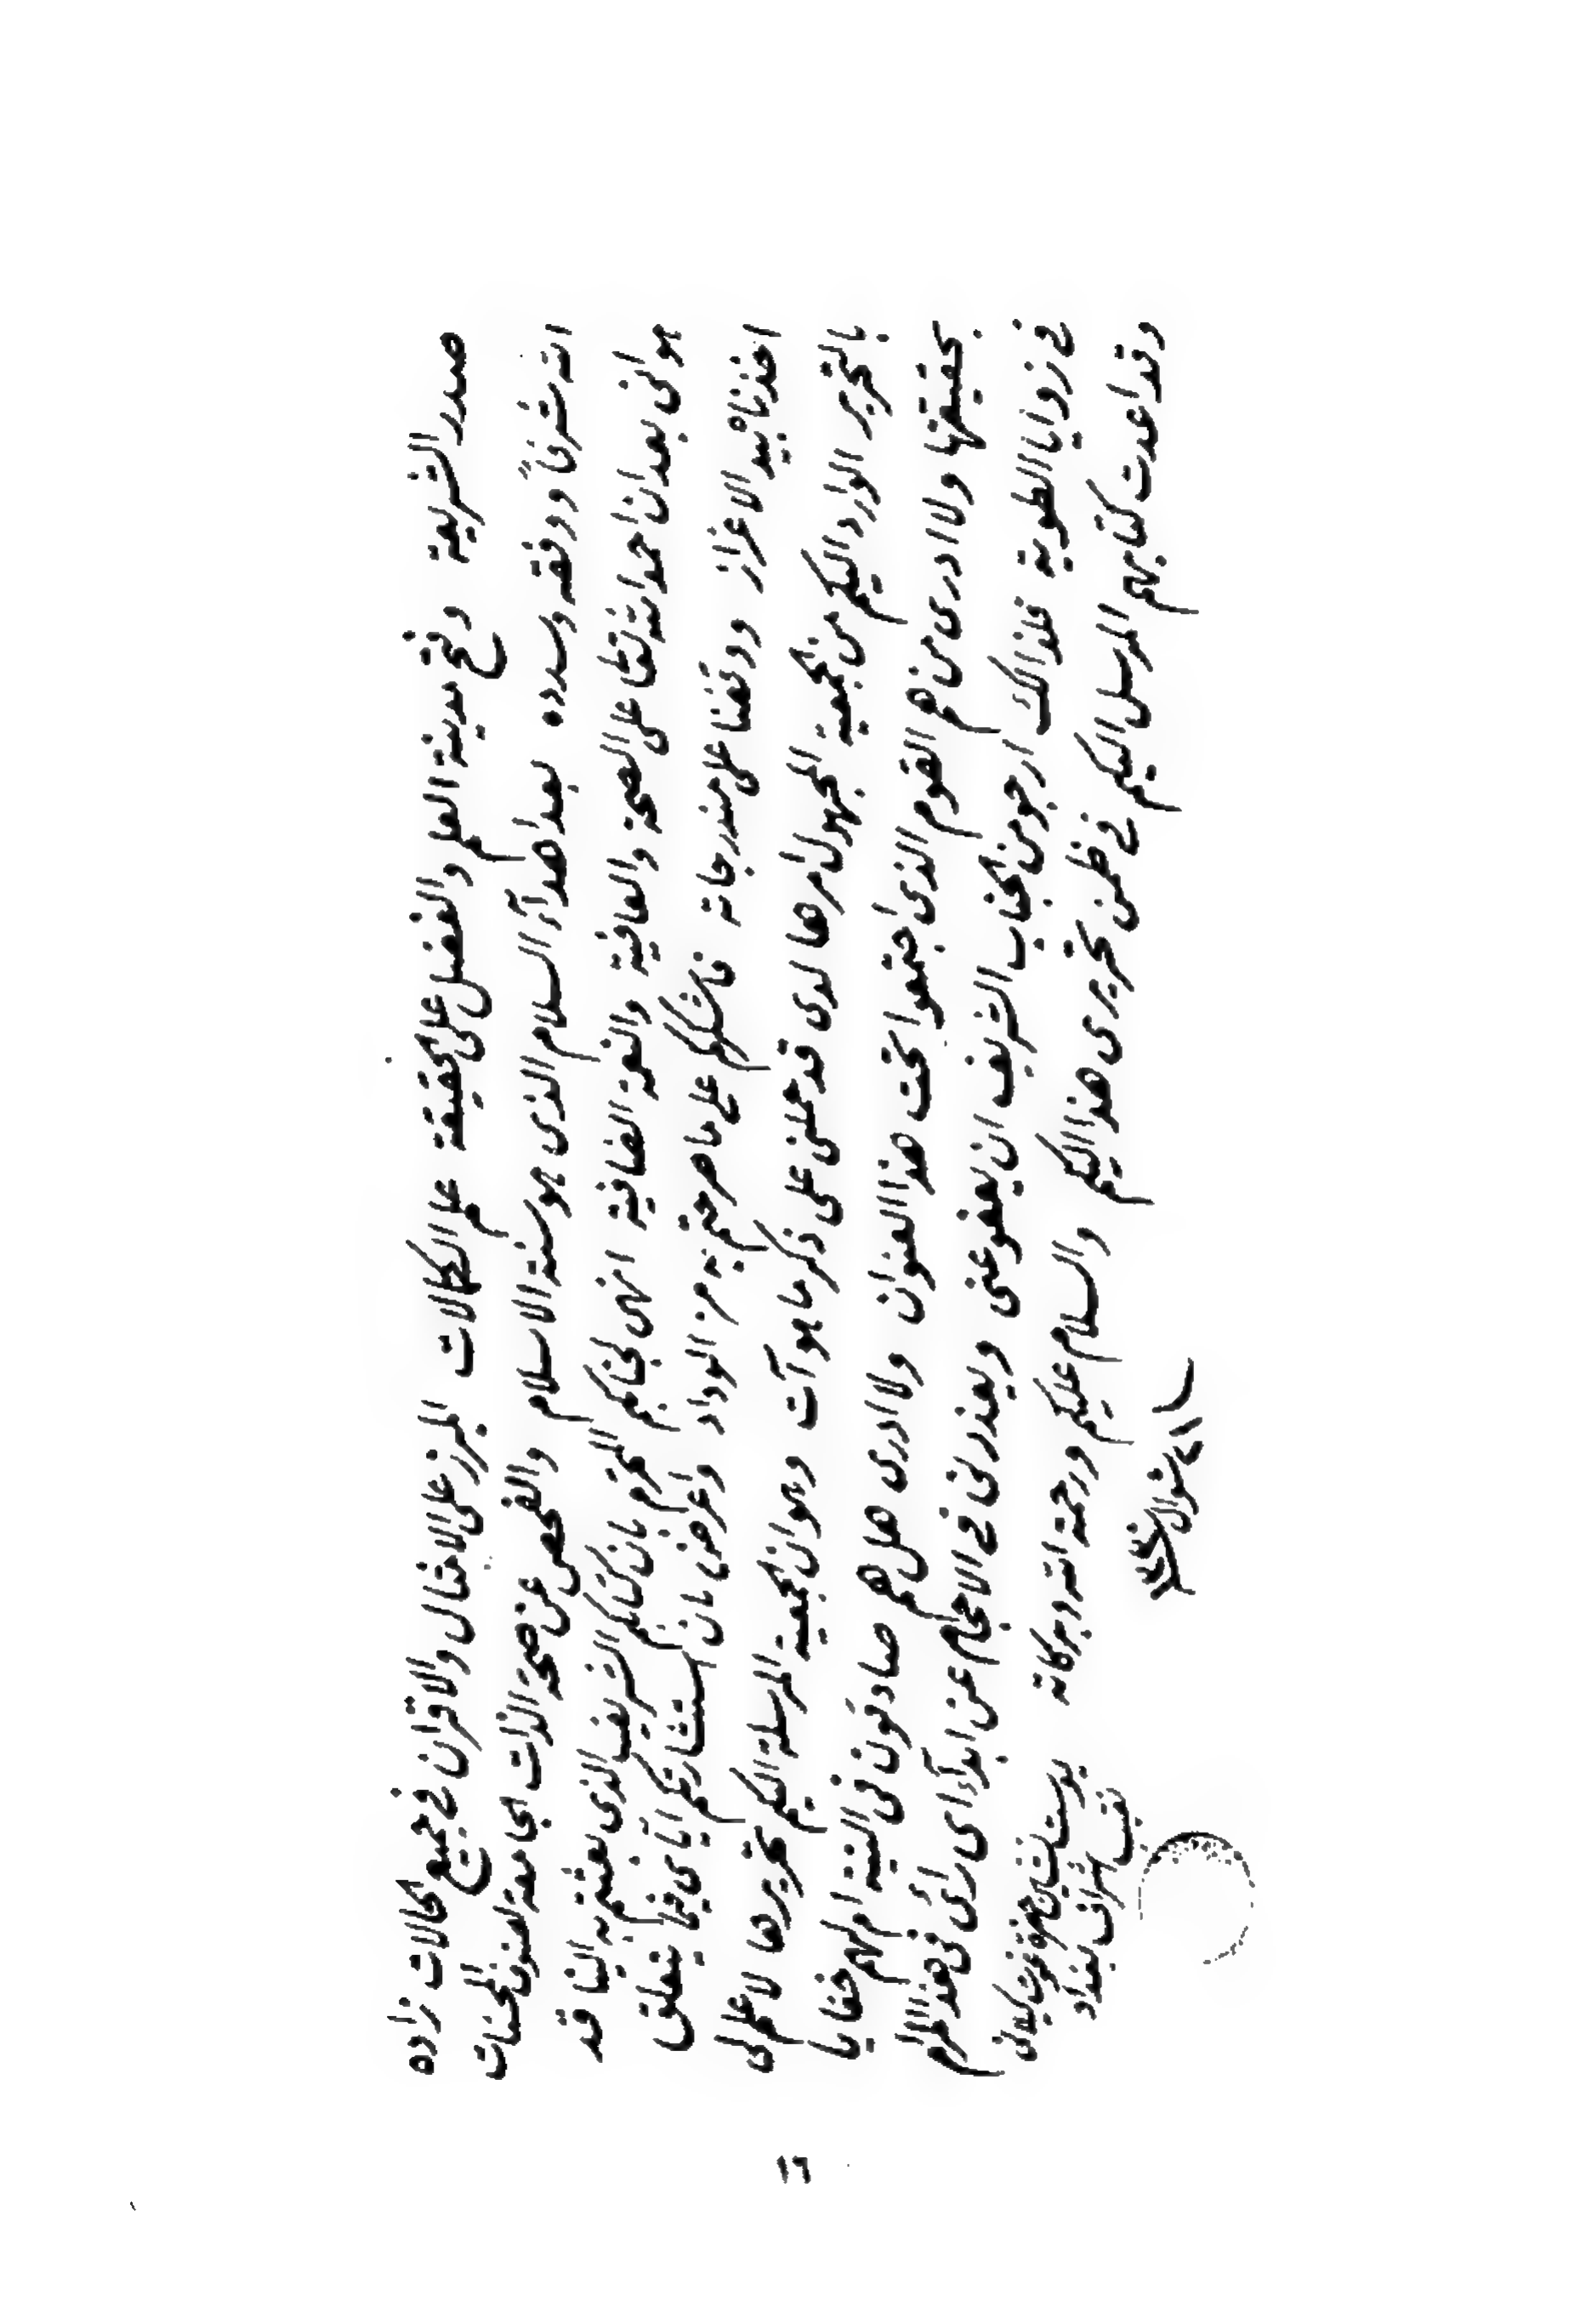 صدر الشريعة وفتح مدينة العلم والفضل على الحقيقة علم الكمالات المبرز على الامثال والاقران في جميع الحالات زاده
الله شرفاً ووفقه وسدده بعد اهدآء السلام الذى هو سنة الاسلام والفحص عن صحة الذات الجامعة لصنوف المحسنات
هو انى بعد ان احمد الله تعالى على الصحة والعافية والنعمة الضافية انهى لجنابكم المحترم بان كتابكم الشريف الذى بعثتم به الينا قد
اخذناه بيد الاعزاز ووقفنا على مندرجاته فاشكركم على ما صرحتم به من الوداد واعرض بان استشارتكم اياى فيما يتعلق
بالتحرير الوارد اليكم من الجمعية المجهول امرها لدى قد حملنى على ذكر ما هو آت وهو ان الجمعية المرسلة اليكم تحريرها لا علم لى
بحقيقتها ولا ادرى من هم القوم الذى اجتمعوا تحت هذا العنوان ولا ادرى هل هم صادقون فى النية ام لهم خفايا
فى زوايا الطوية فلذلك ارجو من الجناب الشريف ان يعفو عنى ويعذرنى فى الاحجام عن ابدآء اى رأى فى هذا المرام
وقد اعدت كتابهم المرسل اليكم فى ظمن تحريرى هذا اليكم والسلام عليكم ورحمة الله وبركاته
نقيب اشراف بغداد
١٦